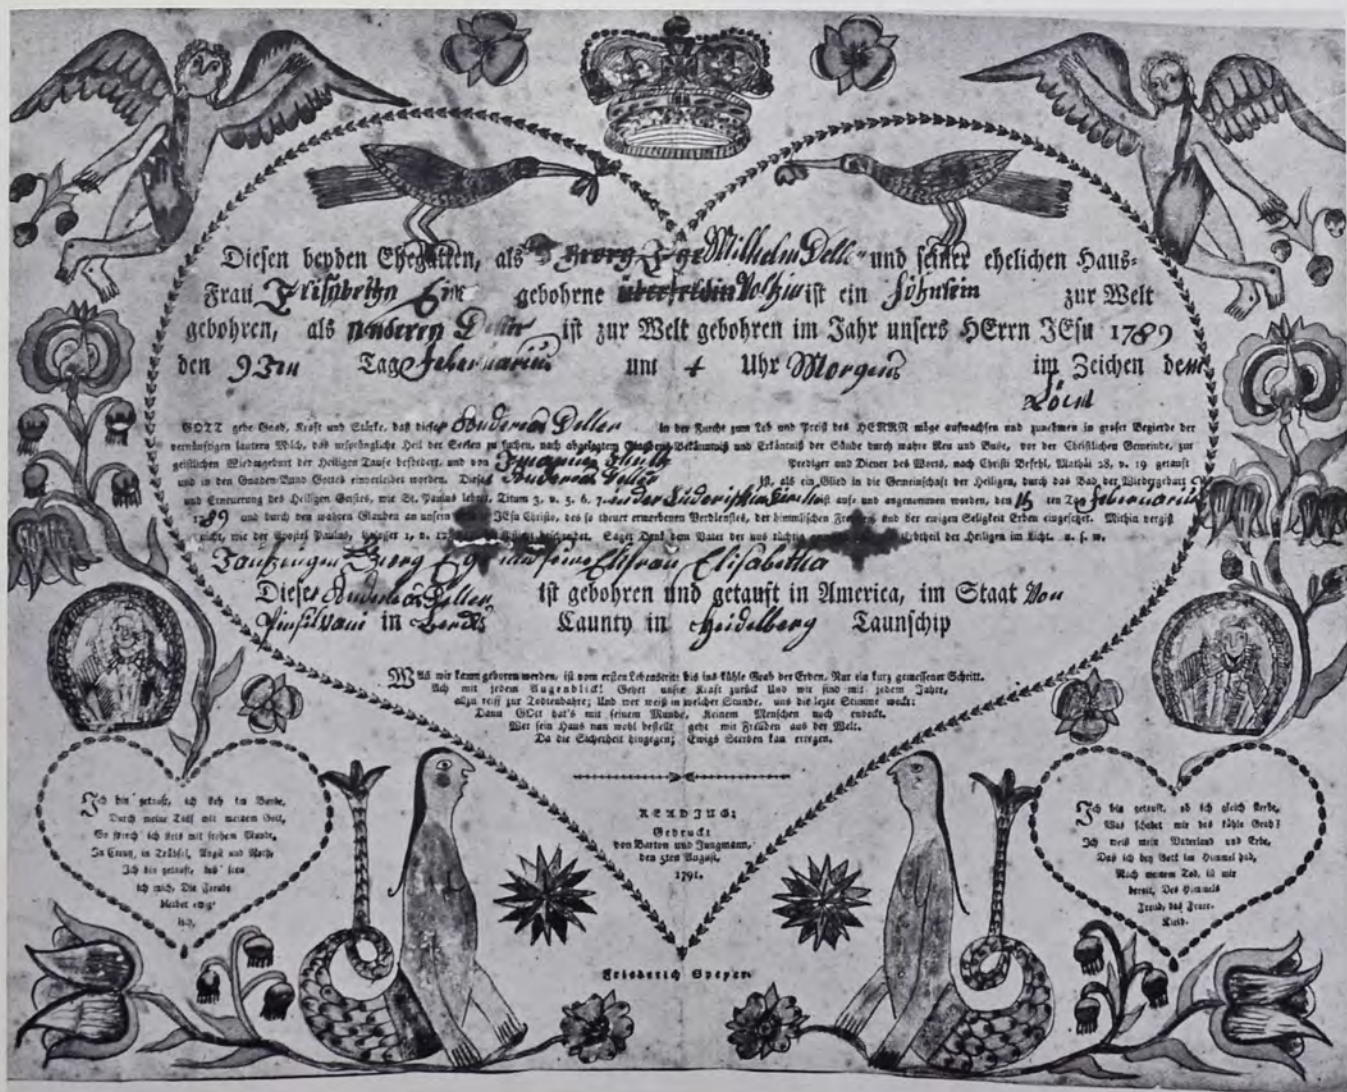 Diesen beyden Ehegatten, als Wilhelm Deller und seiner ehelichen Haus=
Frau Elisabetha gebohrne Voltzin ist ein Söhnlein zur Welt
gebohren, als ist zur Welt gebohren im Jahr unsers HErrn JEsu 1789
den 9 Tag Februarius um 4 Uhr Morgens im Zeichen dem
Löwe
GOTT gebe Gnad, Kraft und Stärke, daß dieser Deller in der Furcht zum Lob und Preiß des HERRN möge aufwachsen und zunehmen in großer Begierde der
vernünftigen lautern Milch, das ursprüngliche Heil der Seelen zu suchen, nach abgelegtem Bekäntniß und Erkäntniß der Sünde durch wahre Reu und Buße, vor der Christlichen Gemeinde, zur
geistlichen Wiedergeburt der Heiligen Taufe befördert, und von Prediger und Diener des Worts, nach Christi Befehl, Mathäi 28, v. 19 getauft
und in den Gnaden-Bund Gottes einverleibet worden. Dieser Deller ist, als ein Glied in die Gemeinschaft der Heiligen, durch das Bad der Wiedergeburt
und Erneuerung des Heiligen Geistes, wie St. Paulus lehret, Titum 3. v. 5. 6. 7. in der auf- und angenommen worden, den ten Tag Februarius
1789 und durch den wahren Glauben an unsern JEsu Christo, des so theuer erworbenen Verdienstes, der himmlischen und der ewigen Seligkeit Erben eingesetzet. Mithin vergiß
nicht, wie der Apostel Paulus, 1, v. Saget Dank dem Vater der uns tüchtig Erbtheil der Heiligen im Licht. u. s. w.
Taufzeugen Elisabetha
Dieser Deller ist gebohren und getauft in America, im Staat Von
Pinsilvani in Berks Caunty in Heidelberg Taunschip
Wann wir kaum geboren werden, ist vom ersten Lebenstritt bis ins kühle Grab der Erden, Nur ein kurz gemessener Schritt.
Ach mit jedem Augenblick! Gehet unsre Kraft zurück Und wir sind mit jedem Jahre,
allzu reiff zur Todtenbahre; Und wer weiß in welcher Stunde, uns die lezte Stimme weckt:
Dann GOtt hat's mit seinem Munde, Keinem Menschen noch endeckt.
Wer sein Haus nun wohl bestellt geht mit Freuden aus der Welt.
Da die Sicherheit hingegen; Ewigs Sterben kan erregen.
Ich bin getauft, ich steh im Bunde,
Durch meine Tauf mit meinem Gott,
So sprech ich stets mit frohem Munde,
In Creuz, in Trübsal, Angst und Noth;
Ich bin getauft, des freu
ich mich, Die Freude
bleibet ewig-
lich.
READING:
Gedruckt
von Barton und Jungmann,
den 5ten August,
1791.
Ich bin getauft, ob ich gleich sterbe,
Was schadet mir das kühle Grab?
Ich weiß mein Vaterland und Erbe,
Das ich bey Gott im Himmel hab,
Nach meinem Tod, ist mir
bereit, Des Himmels
Freud, das Feuer-
Kleid.
Friederich Speyer.